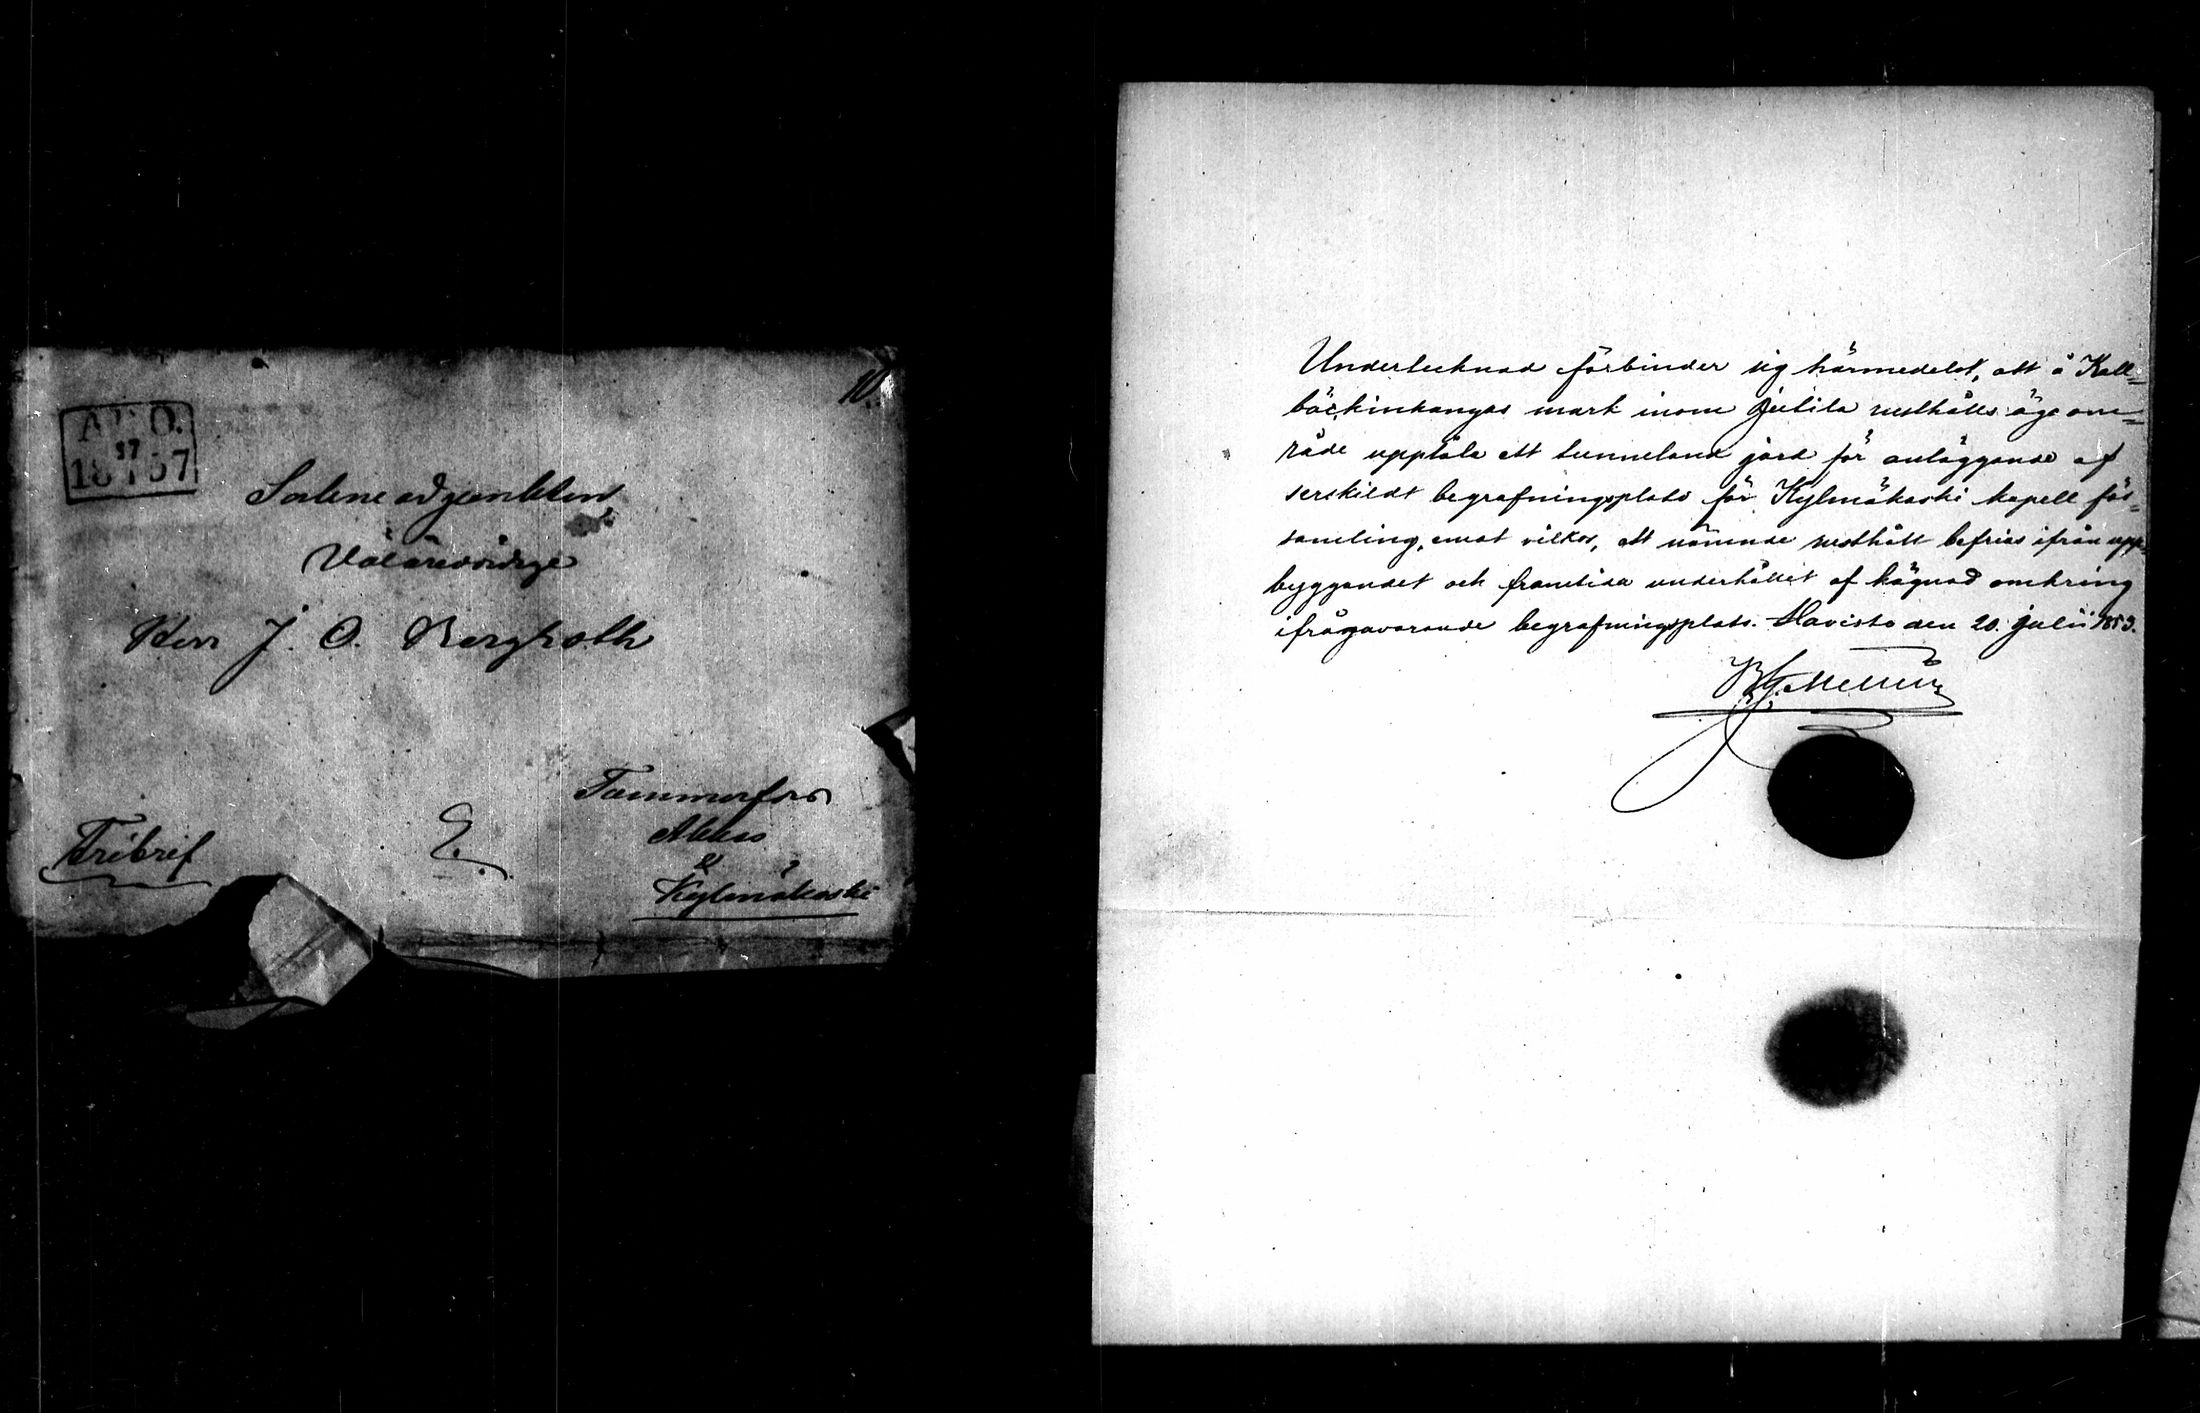 10.
ÅBO.
18 57
Sockneadjunkten
Välärevördige
Herr J. O. Bergroth
Tammerfors
Akkas
&
Kylmäkoski
Fribref
Undertecknad förbinder sig härmedelst, att å Kall=
bäckinkangas mark inom Jutila rusthålls ägoom=
råde upplåta ett tunneland jord för anläggande af
serskildt begrafningsplats för Kylmäkoski kapell för=
samling, emot vilkor, att nämnde rusthåll befrias ifrån upp=
byggandet och framtida underhållet af hägnad omkring
ifrågavarande begrafningsplats. Havisto den 20. julii 1859.